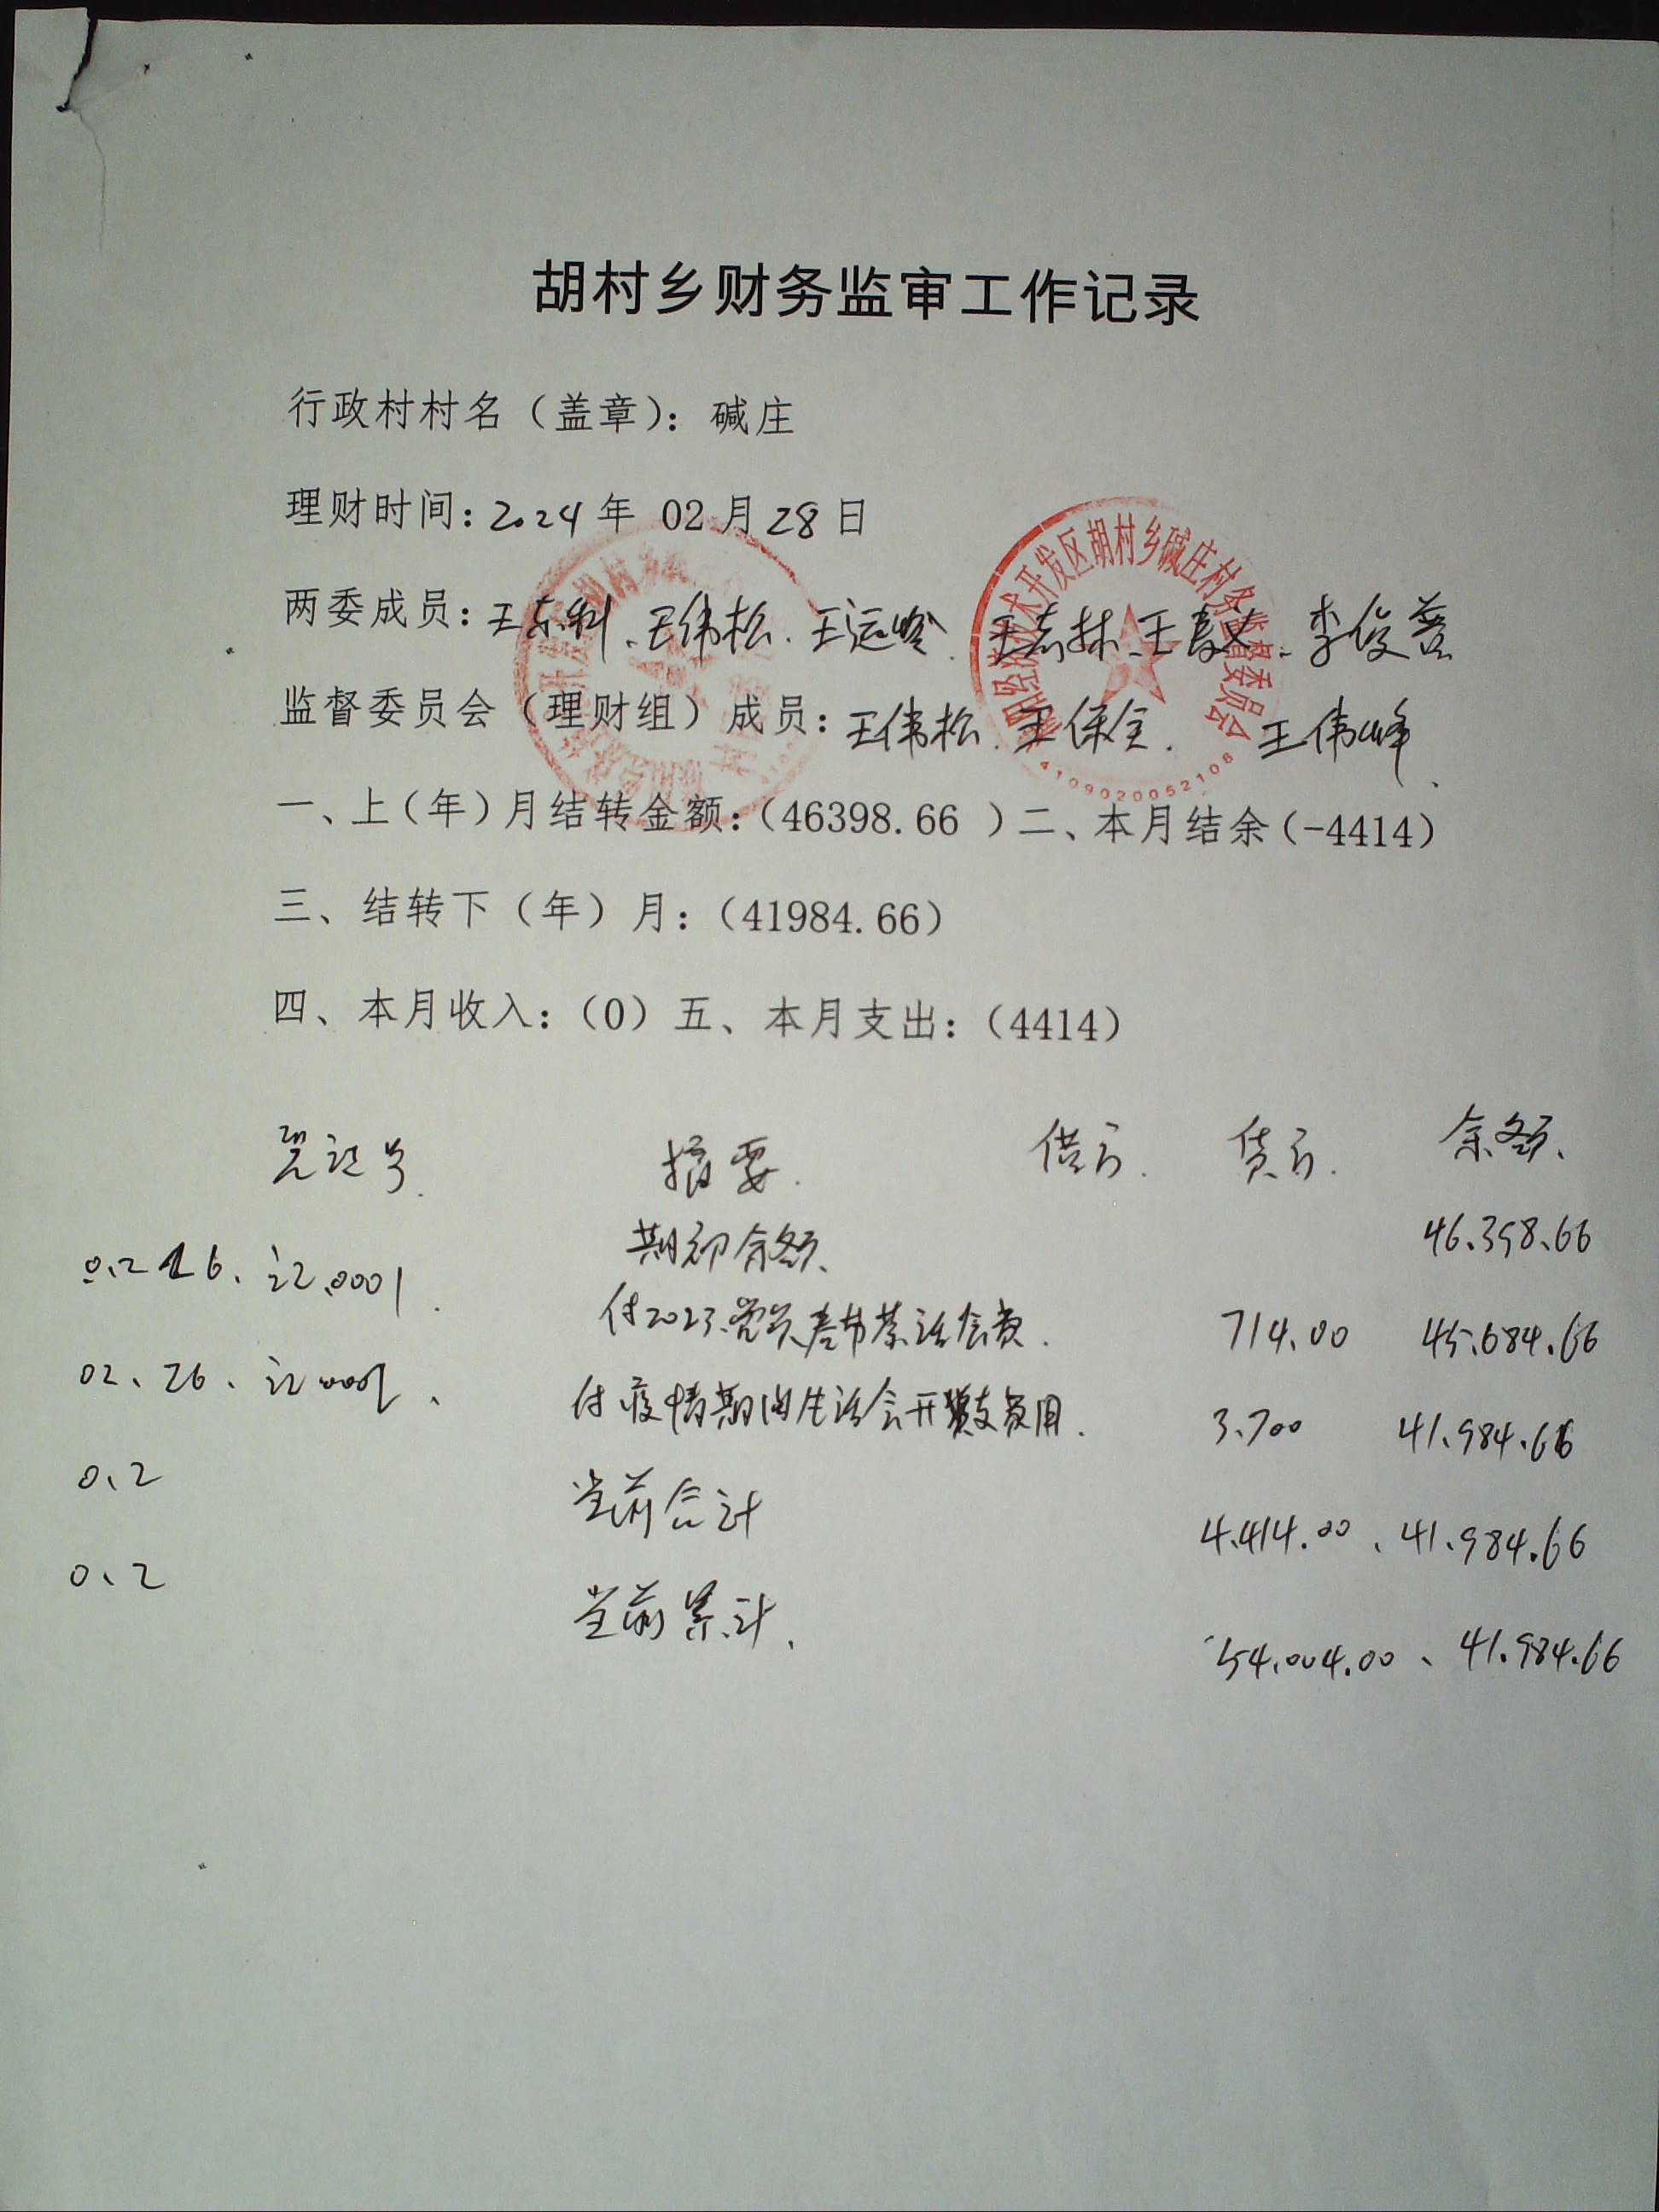 胡村乡财务监审工作记录
行政村村名（盖章）：碱庄
理财时间：2024年 02月28日
两委成员：王东利、王伟松、王远岭、王志林、王、李俊蓉
监督委员会（理财组）成员：王伟松、王保全、王伟峰、
开发区胡村乡碱庄村务监督委员会
4109020052106
一、上（年）月结转金额：（46398.66 ）二、本月结余（-4414）
三、结转下（年）月：（41984.66）
四、本月收入：（0）五、本月支出：（4414）
凭证号 摘要 借方 贷方 余额
期初余额 46,398.66
0.2 16、记0001 付2023党员春节茶话会费 714.00 45,684.66
02.26、记0002 付疫情期间生活会开支费用 3,700 41,984.66
0.2 当前合计 4,414.00、41,984.66
0.2 当前累计 54,004.00、41,984.66